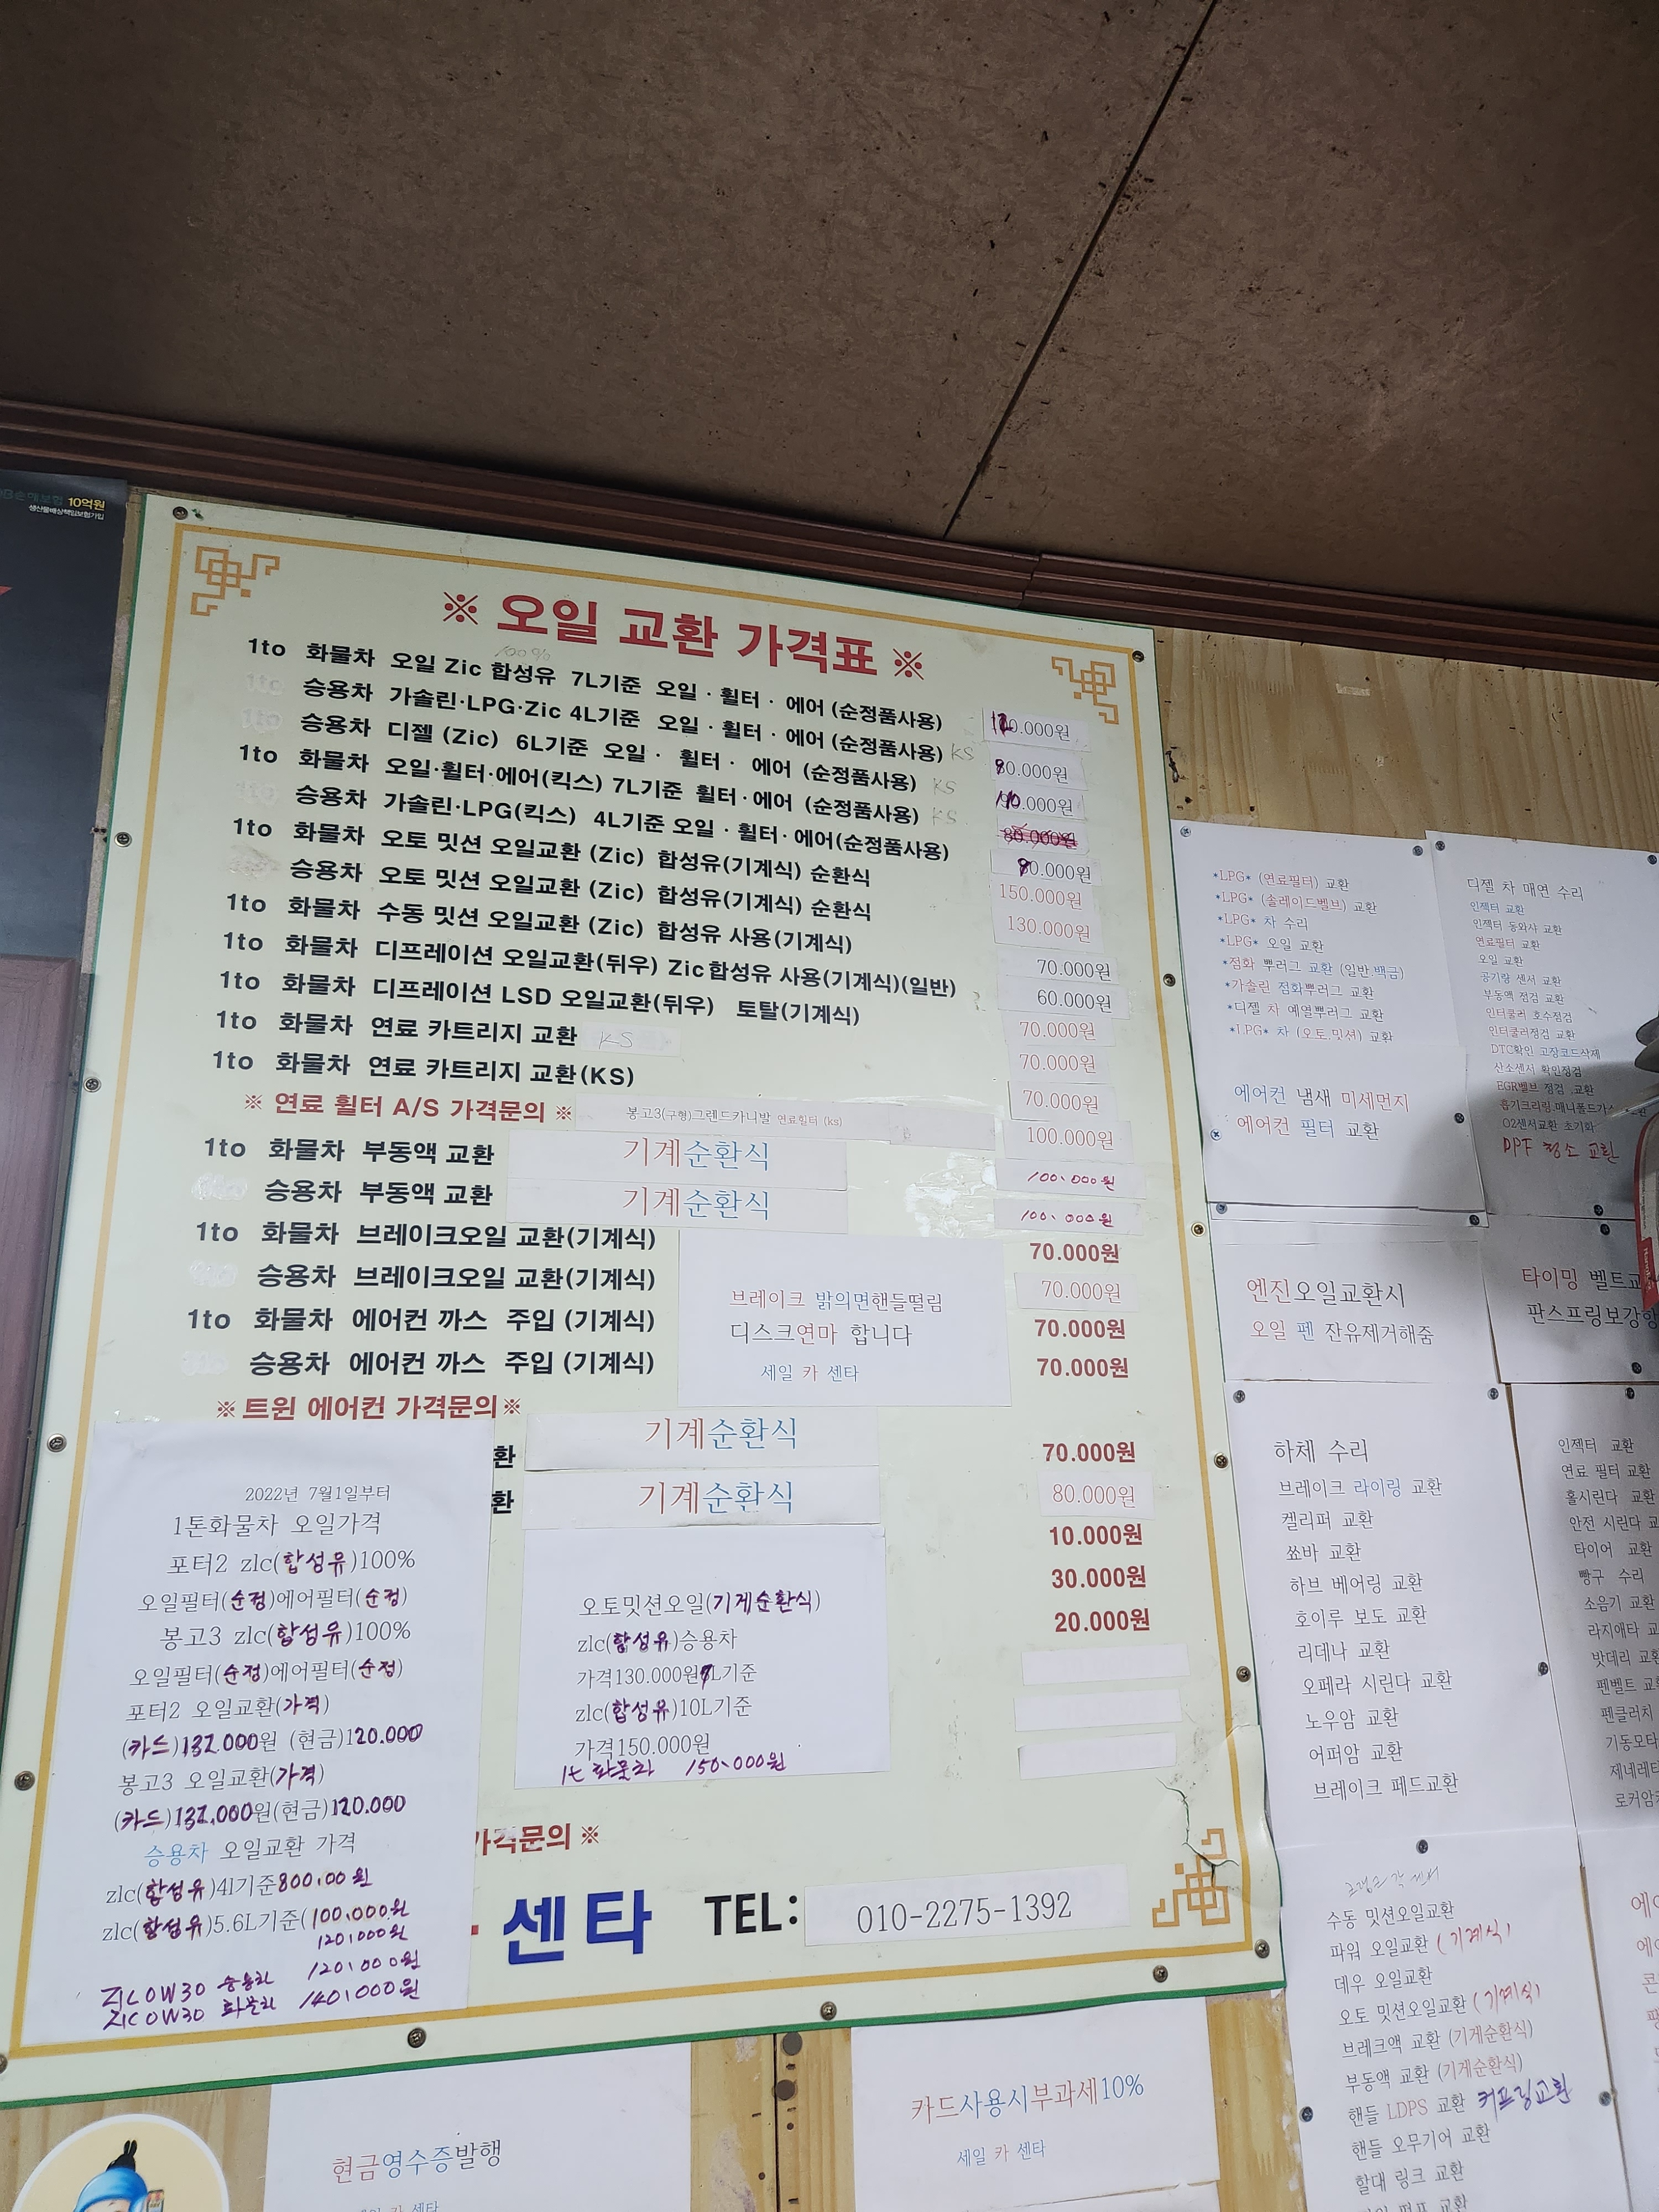 10억원
생산물배상책임보험가입
※ 오일 교환 가격표 ※
100%
1to 화물차 오일 Zic 합성유 7L기준 오일 · 휠터 · 에어 (순정품사용) 120.000원
승용차 가솔린·LPG·Zic 4L기준 오일 · 휠터 · 에어 (순정품사용) KS 80.000원
승용차 디젤 (Zic) 6L기준 오일 · 휠터 · 에어 (순정품사용) KS
1to 화물차 오일·휠터·에어(킥스) 7L기준 휠터·에어 (순정품사용) KS
승용차 가솔린·LPG(킥스) 4L기준 오일 · 휠터 · 에어(순정품사용)
1to 화물차 오토 밋션 오일교환 (Zic) 합성유(기계식) 순환식 150.000원
승용차 오토 밋션 오일교환 (Zic) 합성유(기계식) 순환식 130.000원
1to 화물차 수동 밋션 오일교환 (Zic) 합성유 사용(기계식) 70.000원
1to 화물차 디프레이션 오일교환(뒤우) Zic합성유 사용(기계식)(일반) 60.000원
1to 화물차 디프레이션 LSD 오일교환(뒤우) 토탈(기계식) 70.000원
1to 화물차 연료 카트리지 교환 KS 70.000원
1to 화물차 연료 카트리지 교환(KS) 70.000원
※ 연료 휠터 A/S 가격문의 ※ 봉고3(구형)그렌드카니발 연료휠터 (ks) 100.000원
1to 화물차 부동액 교환 기계순환식 100.000원
승용차 부동액 교환 기계순환식 100.000원
1to 화물차 브레이크오일 교환(기계식) 70.000원
승용차 브레이크오일 교환(기계식) 70.000원
1to 화물차 에어컨 까스 주입 (기계식) 70.000원
승용차 에어컨 까스 주입 (기계식) 70.000원
브레이크 밝의면핸들떨림
디스크연마 합니다
세일 카 센타
※트윈 에어컨 가격문의※
환 기계순환식 70.000원
환 기계순환식 80.000원
10.000원
30.000원
20.000원
2022년 7월1일부터
1톤화물차 오일가격
포터2 zlc(합성유)100%
오일필터(순정)에어필터(순정)
봉고3 zlc(합성유)100%
오일필터(순정)에어필터(순정)
포터2 오일교환(가격)
(카드)132.000원 (현금)120.000
봉고3 오일교환(가격)
(카드)132.000원(현금)120.000
승용차 오일교환 가격
zlc(합성유)4l기준800.00원
zlc(합성유)5.6L기준(100.000원
120.000원
ZIC 0W30 승용차 120.000원
ZIC 0W30 화물차 140.000원
오토밋션오일(기게순환식)
zlc(합성유)승용차
가격130.000원 L기준
zlc(합성유)10L기준
가격150.000원
1t 화물차 150.000원
가격문의 ※
센타 TEL: 010-2275-1392
*LPG* (연료필터) 교환
*LPG* (솔레이드벨브) 교환
*LPG* 차 수리
*LPG* 오일 교환
*점화 뿌러그 교환 (일반.백금)
*가솔린 점화뿌러그 교환
*디젤 차 예열뿌러그 교환
*LPG* 차 (오토.밋션) 교환
에어컨 냄새 미세먼지
에어컨 필터 교환
디젤 차 매연 수리
인젝터 교환
인젝터 동와사 교환
연료필터 교환
오일 교환
공기량 센서 교환
부동액 점검 교환
인터쿨러 호수점검
인터쿨러점검 교환
DTC확인 고장코드삭제
산소센서 확인점검
EGR벨브 점검 .교환
흡기크리링.매니폴드가
O2센서교환 초기화
DPF 청소 교환
엔진오일교환시
오일 펜 잔유제거해줌
타이밍 벨트교
판스프링보강
하체 수리
브레이크 라이링 교환
켈리퍼 교환
쑈바 교환
하브 베어링 교환
호이루 보도 교환
리데나 교환
오페라 시린다 교환
노우암 교환
어퍼암 교환
브레이크 페드교환
인젝터 교환
연료 필터 교환
홀시린다 교환
안전 시린다 교
타이어 교환
빵구 수리
소음기 교환
라지애타 교
밧데리 교환
펜벨트 교환
펜클러치
기동모타
제네레타
로커암
수동 밋션오일교환
파워 오일교환 (기계식)
데우 오일교환
오토 밋션오일교환 (기계식)
브레크액 교환 (기게순환식)
부동액 교환 (기게순환식)
핸들 LDPS 교환 커프링교환
핸들 오무기어 교환
할대 링크 교환
현금영수증발행
카드사용시부과세10%
세일 카 센타